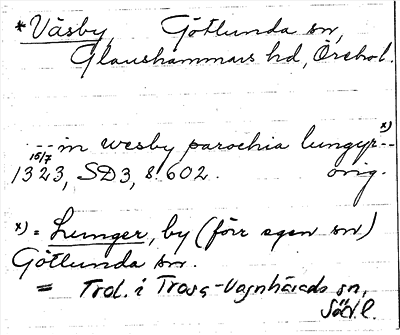 * Väsby, Götlunda sn,
Glanshammars hd, Örebol.
-- in wesby parochia lungyr x) --
15/7
1323, SD3, s. 602. orig.
x) = Lunger, by (förr egen sn)
Götlunda sn.
= Trol. i Trosa-Vagnhärads sn,
Söd. l.